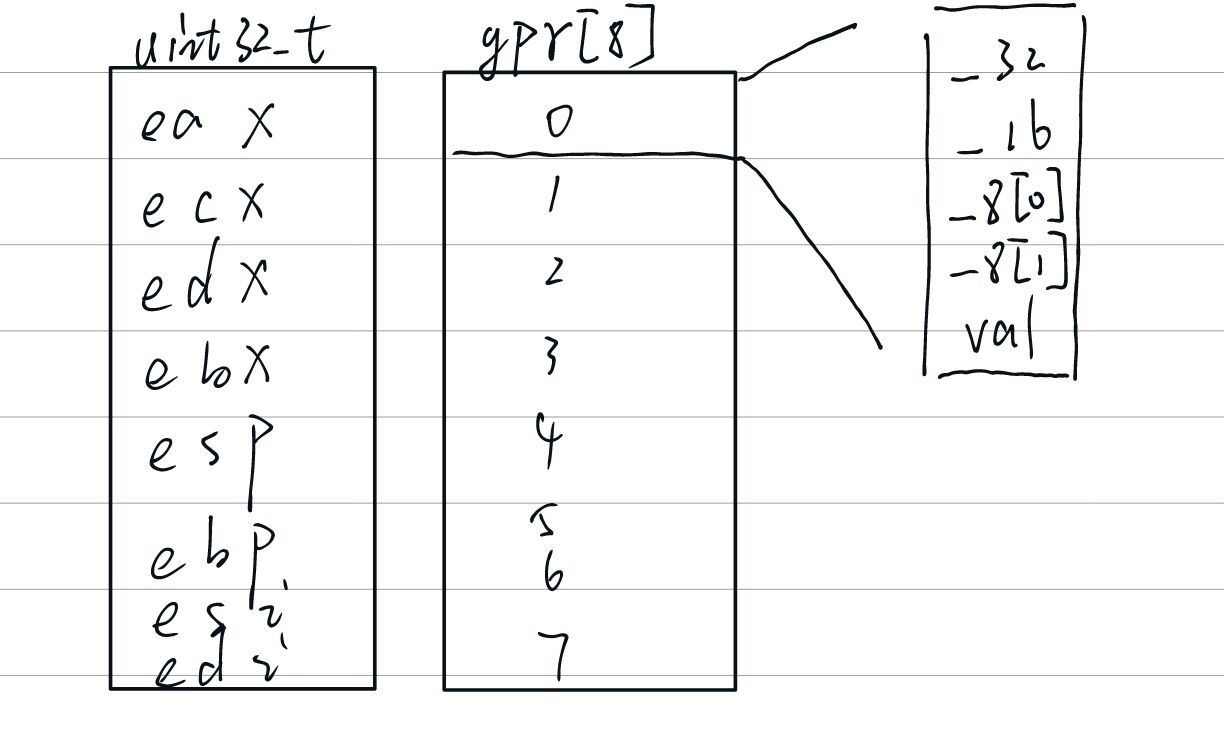 uint32_t
eax
ecx
edx
ebx
esp
ebp
esi
edi
gpr[8]
0
1
2
3
4
5
6
7
_32
_16
_8[0]
_8[1]
val